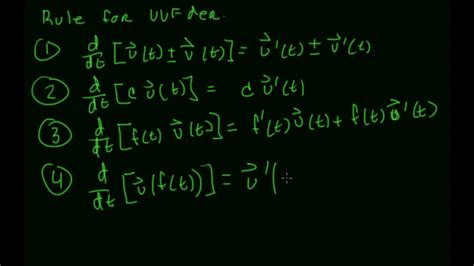 Rule for VVF der.
① d/dt [u⃗(t) ± v⃗(t)] = u⃗'(t) ± v⃗'(t)
② d/dt [c u⃗(t)] = c u⃗'(t)
③ d/dt [f(t) u⃗(t)] = f'(t) u⃗(t) + f(t) u⃗'(t)
④ d/dt [u⃗(f(t))] = u⃗'(